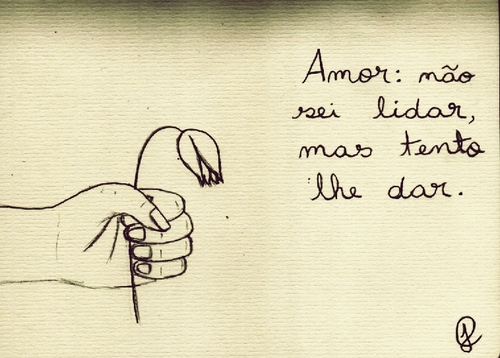 Amor: não
sei lidar,
mas tento
lhe dar.